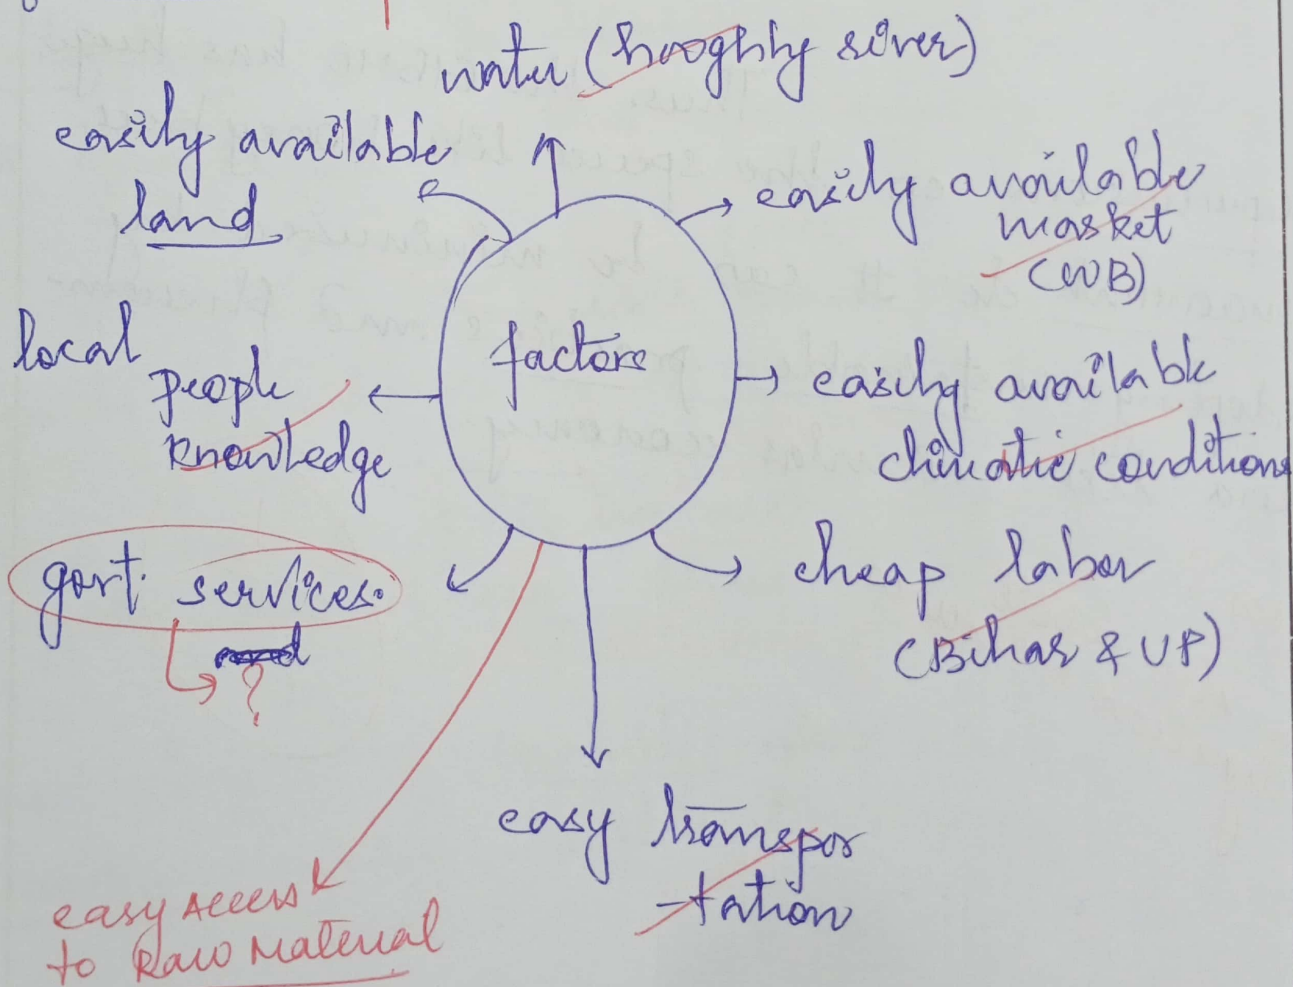 water (hooghly river)
easily available
land
easily available
market
(WB)
factors
local
people
knowledge
easily available
climatic conditions
govt. services.
?
cheap labor
(Bihar & UP)
easy transpor
-tation
easy Access
to Raw Material